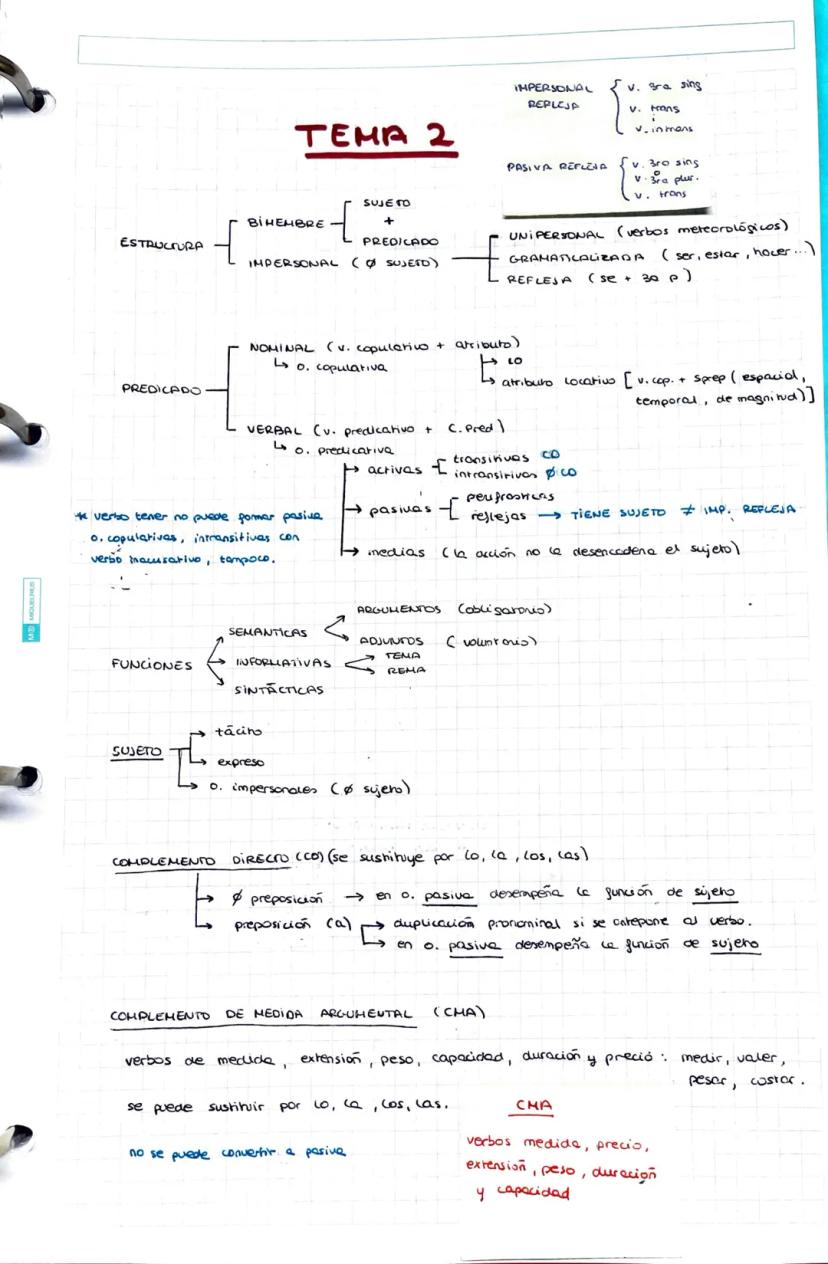 IMPERSONAL REFLEJA { v. 3ra sing
v. trans
v. intrans
TEMA 2
PASIVA REFLEJA { v. 3ro sing
o
v. 3ra plur.
v. trans
ESTRUCTURA
BIMEMBRE
SUJETO
+
PREDICADO
IMPERSONAL (Ø SUJETO)
UNIPERSONAL (verbos meteorológicos)
GRAMATICALIZADA (ser, estar, hacer...)
REFLEJA (se + 3a p)
PREDICADO
NOMINAL (v. copulativo + atributo)
↳ o. copulativa
↳ LO
↳ atributo locativo [v. cop. + sprep (espacial,
temporal, de magnitud)]
VERBAL (v. predicativo + C. Pred)
↳ o. predicativa
→ activas
transitivas CD
intransitivas Ø CD
→ pasivas
perifrásticas
reflejas → TIENE SUJETO ≠ IMP. REFLEJA
→ medias (la acción no la desencadena el sujeto)
* verbo tener no puede formar pasiva
o. copulativas, intransitivas con
verbo inacusativo, tampoco.
MIQUELRIUS
FUNCIONES
SEMÁNTICAS
ARGUMENTOS (obligatorio)
ADJUNTOS (voluntario)
INFORMATIVAS
TEMA
REMA
SINTÁCTICAS
SUJETO
→ tácito
→ expreso
→ o. impersonales (Ø sujeto)
COMPLEMENTO DIRECTO (CD) (se sustituye por lo, la, los, las)
→ Ø preposición → en o. pasiva desempeña la función de sujeto
→ preposición (a) → duplicación pronominal si se antepone al verbo.
→ en o. pasiva desempeña la función de sujeto
COMPLEMENTO DE MEDIDA ARGUMENTAL (CMA)
verbos de medida, extensión, peso, capacidad, duración y precio: medir, valer,
pesar, costar.
se puede sustituir por lo, la, los, las.
no se puede convertir a pasiva
CMA
verbos medida, precio,
extensión, peso, duración
y capacidad